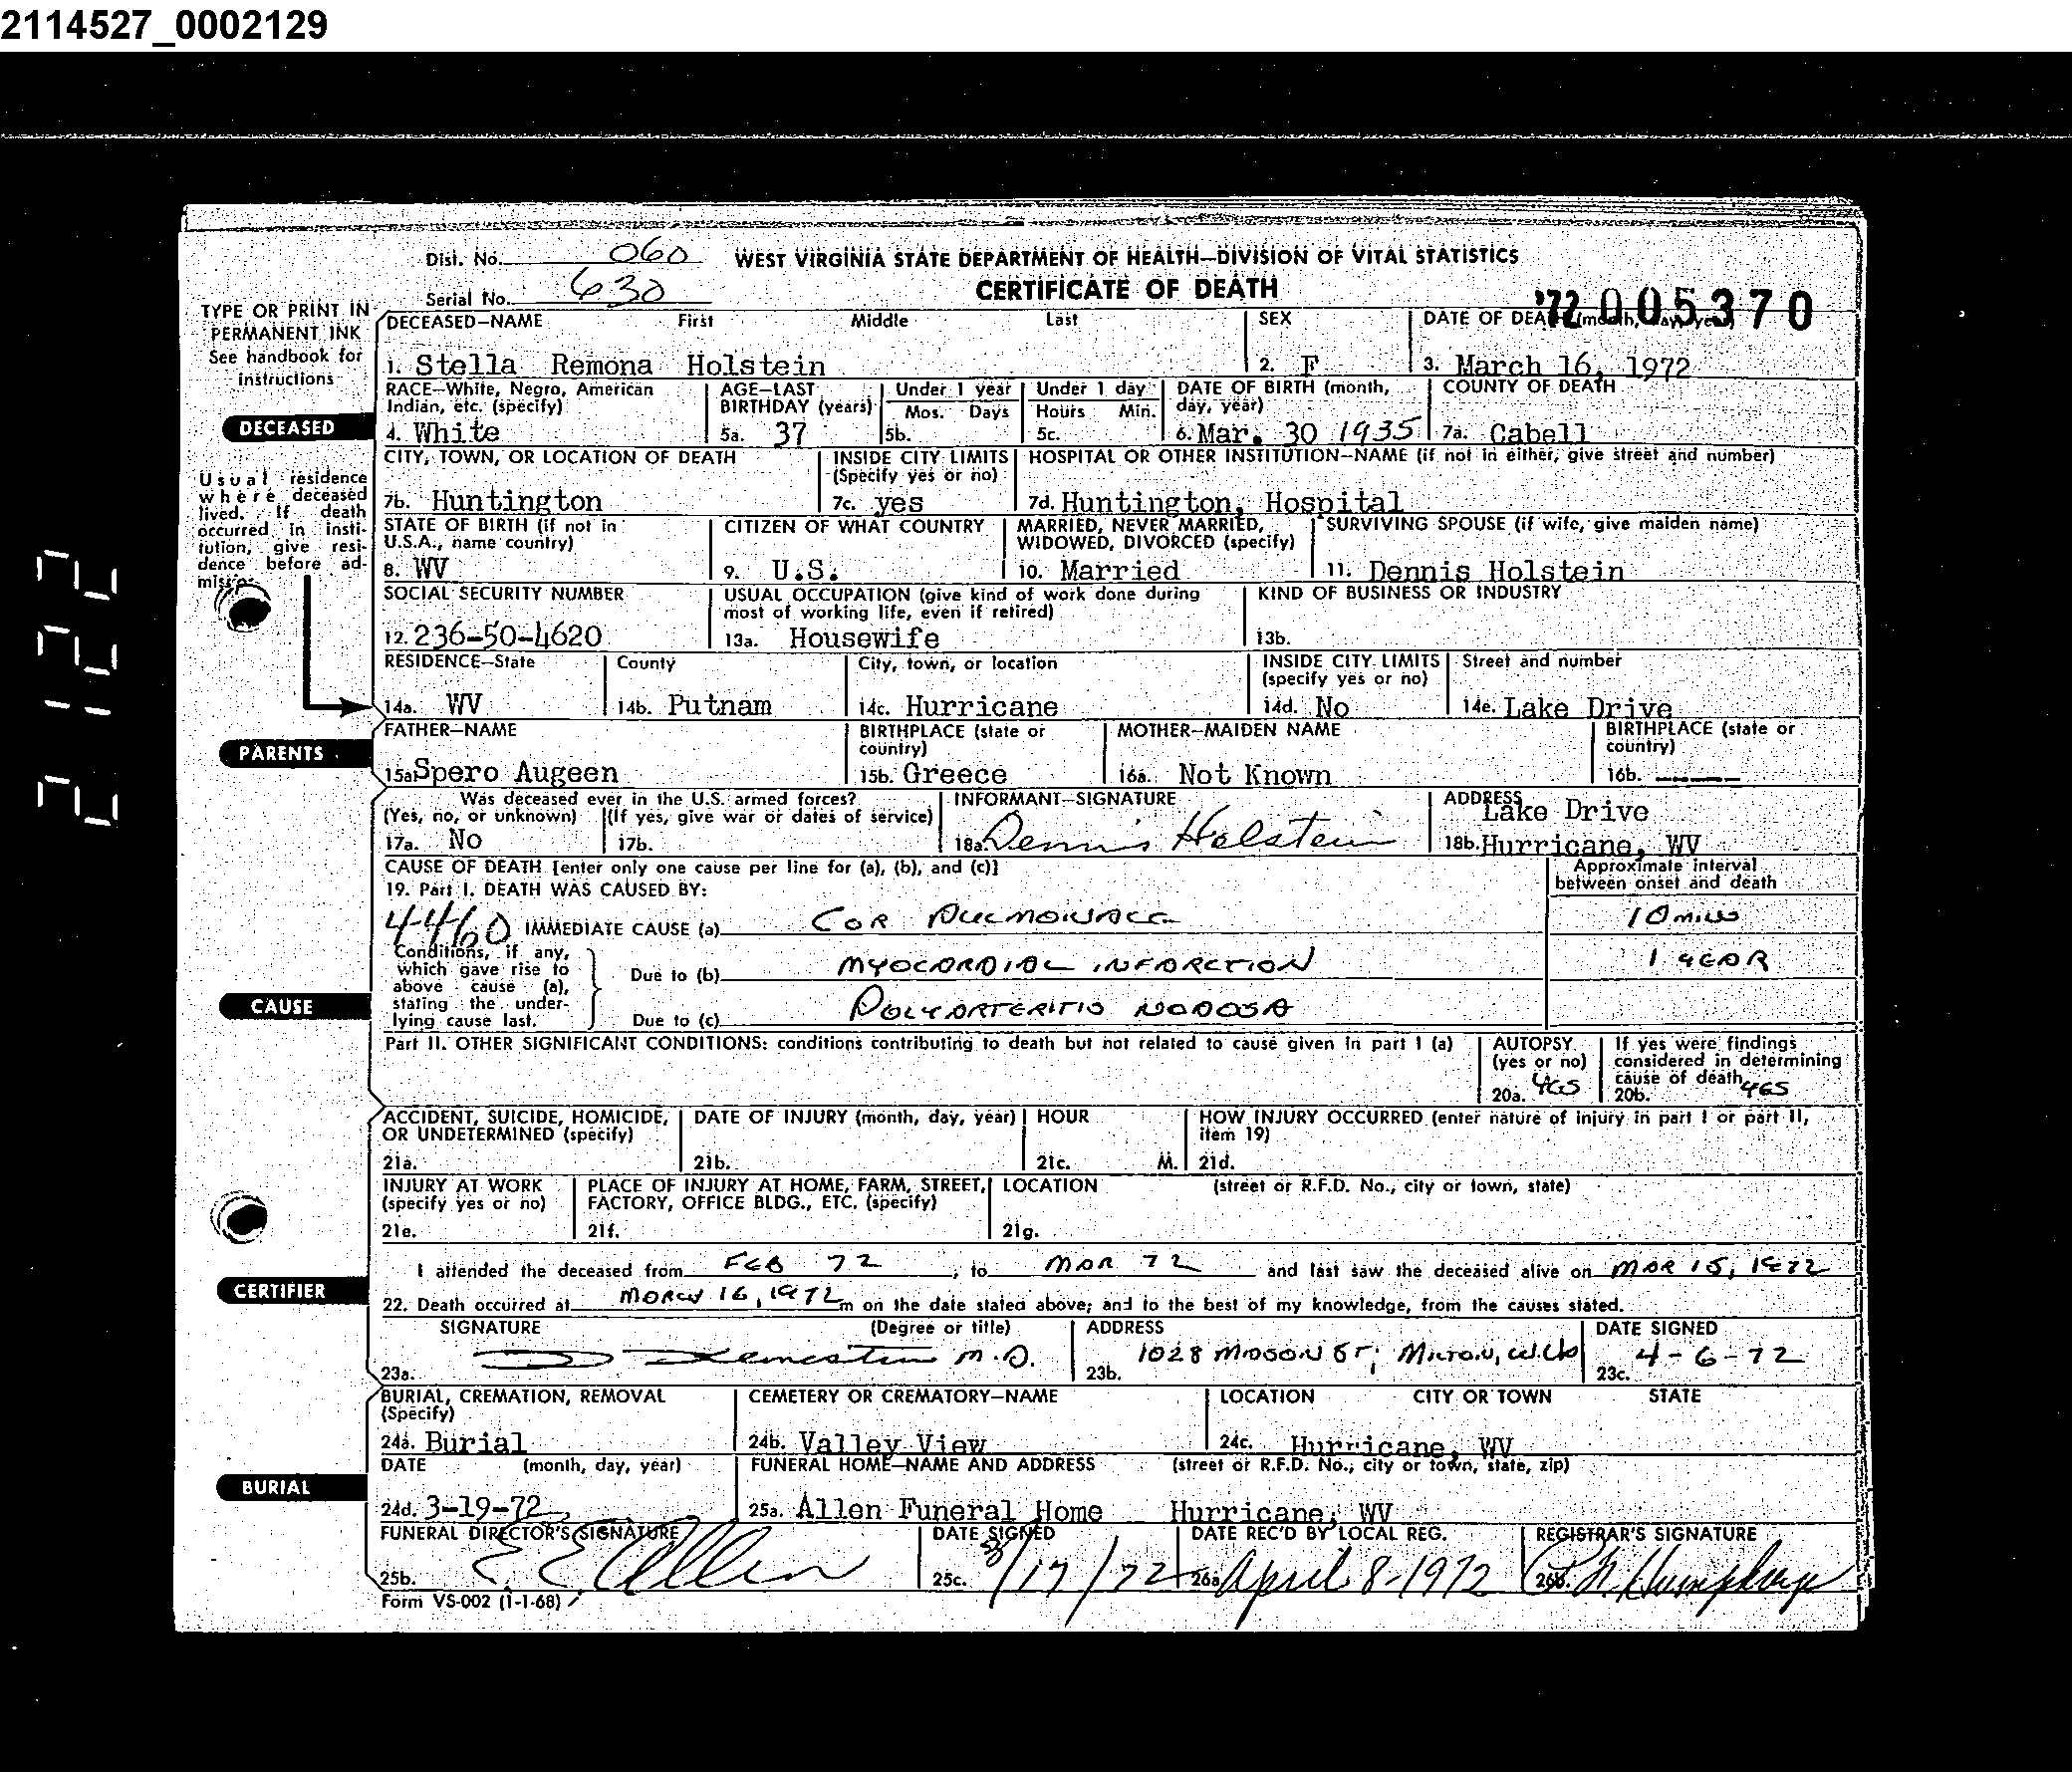 2114527_0002129
Dist. No. 060 WEST VIRGINIA STATE DEPARTMENT OF HEALTH—DIVISION OF VITAL STATISTICS
Serial No. 630 CERTIFICATE OF DEATH
'72 005370
TYPE OR PRINT IN
PERMANENT INK
See handbook for
instructions
DECEASED—NAME First Middle Last SEX DATE OF DEATH (month, day, year)
1. Stella Remona Holstein 2. F 3. March 16, 1972
RACE—White, Negro, American Indian, etc. (specify) AGE—LAST BIRTHDAY (years) Under 1 year Mos. Days Under 1 day Hours Min. DATE OF BIRTH (month, day, year) COUNTY OF DEATH
DECEASED
4. White 5a. 37 5b. 5c. 6. Mar. 30 1935 7a. Cabell
CITY, TOWN, OR LOCATION OF DEATH INSIDE CITY LIMITS (Specify yes or no) HOSPITAL OR OTHER INSTITUTION—NAME (if not in either, give street and number)
7b. Huntington 7c. yes 7d. Huntington, Hospital
Usual residence
where deceased
lived. If death
occurred in insti-
tution, give resi-
dence before ad-
STATE OF BIRTH (if not in U.S.A., name country) CITIZEN OF WHAT COUNTRY MARRIED, NEVER MARRIED, WIDOWED, DIVORCED (specify) SURVIVING SPOUSE (if wife, give maiden name)
8. WV 9. U.S. 10. Married 11. Dennis Holstein
SOCIAL SECURITY NUMBER USUAL OCCUPATION (give kind of work done during most of working life, even if retired) KIND OF BUSINESS OR INDUSTRY
12. 236-50-4620 13a. Housewife 13b.
RESIDENCE—State County City, town, or location INSIDE CITY LIMITS (specify yes or no) Street and number
14a. WV 14b. Putnam 14c. Hurricane 14d. No 14e. Lake Drive
PARENTS
FATHER—NAME BIRTHPLACE (state or country) MOTHER—MAIDEN NAME BIRTHPLACE (state or country)
15a. Spero Augeen 15b. Greece 16a. Not Known 16b. -----
Was deceased ever in the U.S. armed forces? INFORMANT—SIGNATURE ADDRESS
(Yes, no, or unknown) (If yes, give war or dates of service) Lake Drive
17a. No 17b. 18a. Dennis Holstein 18b. Hurricane, WV
CAUSE OF DEATH [enter only one cause per line for (a), (b), and (c)] Approximate interval between onset and death
19. Part I. DEATH WAS CAUSED BY:
4460 IMMEDIATE CAUSE (a) COR PULMONALE 10 mins
Conditions, if any,
which gave rise to
above cause (a),
stating the under-
lying cause last.
Due to (b) MYOCARDIAL INFARCTION 1 YEAR
CAUSE
Due to (c) POLYARTERITIS NODOSA
Part II. OTHER SIGNIFICANT CONDITIONS: conditions contributing to death but not related to cause given in part I (a) AUTOPSY (yes or no) If yes were findings considered in determining cause of death
20a. YES 20b. YES
ACCIDENT, SUICIDE, HOMICIDE, OR UNDETERMINED (specify) DATE OF INJURY (month, day, year) HOUR HOW INJURY OCCURRED (enter nature of injury in part I or part II, item 19)
21a. 21b. 21c. M. 21d.
INJURY AT WORK (specify yes or no) PLACE OF INJURY AT HOME, FARM, STREET, FACTORY, OFFICE BLDG., ETC. (specify) LOCATION (street or R.F.D. No., city or town, state)
21e. 21f. 21g.
CERTIFIER
I attended the deceased from FEB 72, to MAR 72 and last saw the deceased alive on MAR 15, 1972
22. Death occurred at MARCH 16, 1972 m on the date stated above; and to the best of my knowledge, from the causes stated.
SIGNATURE (Degree or title) ADDRESS DATE SIGNED
23a. M.D. 23b. 1028 MASON ST; MILTON, W.VA 23c. 4-6-72
BURIAL, CREMATION, REMOVAL (Specify) CEMETERY OR CREMATORY—NAME LOCATION CITY OR TOWN STATE
24a. Burial 24b. Valley View 24c. Hurricane, WV
BURIAL
DATE (month, day, year) FUNERAL HOME—NAME AND ADDRESS (street or R.F.D. No., city or town, state, zip)
24d. 3-19-72 25a. Allen Funeral Home Hurricane, WV
FUNERAL DIRECTOR'S SIGNATURE DATE SIGNED DATE REC'D BY LOCAL REG. REGISTRAR'S SIGNATURE
25b. E. E. Allen 25c. 3/17/72 26a. April 8-1972 26b. Humphrey
Form VS-002 (1-1-68)